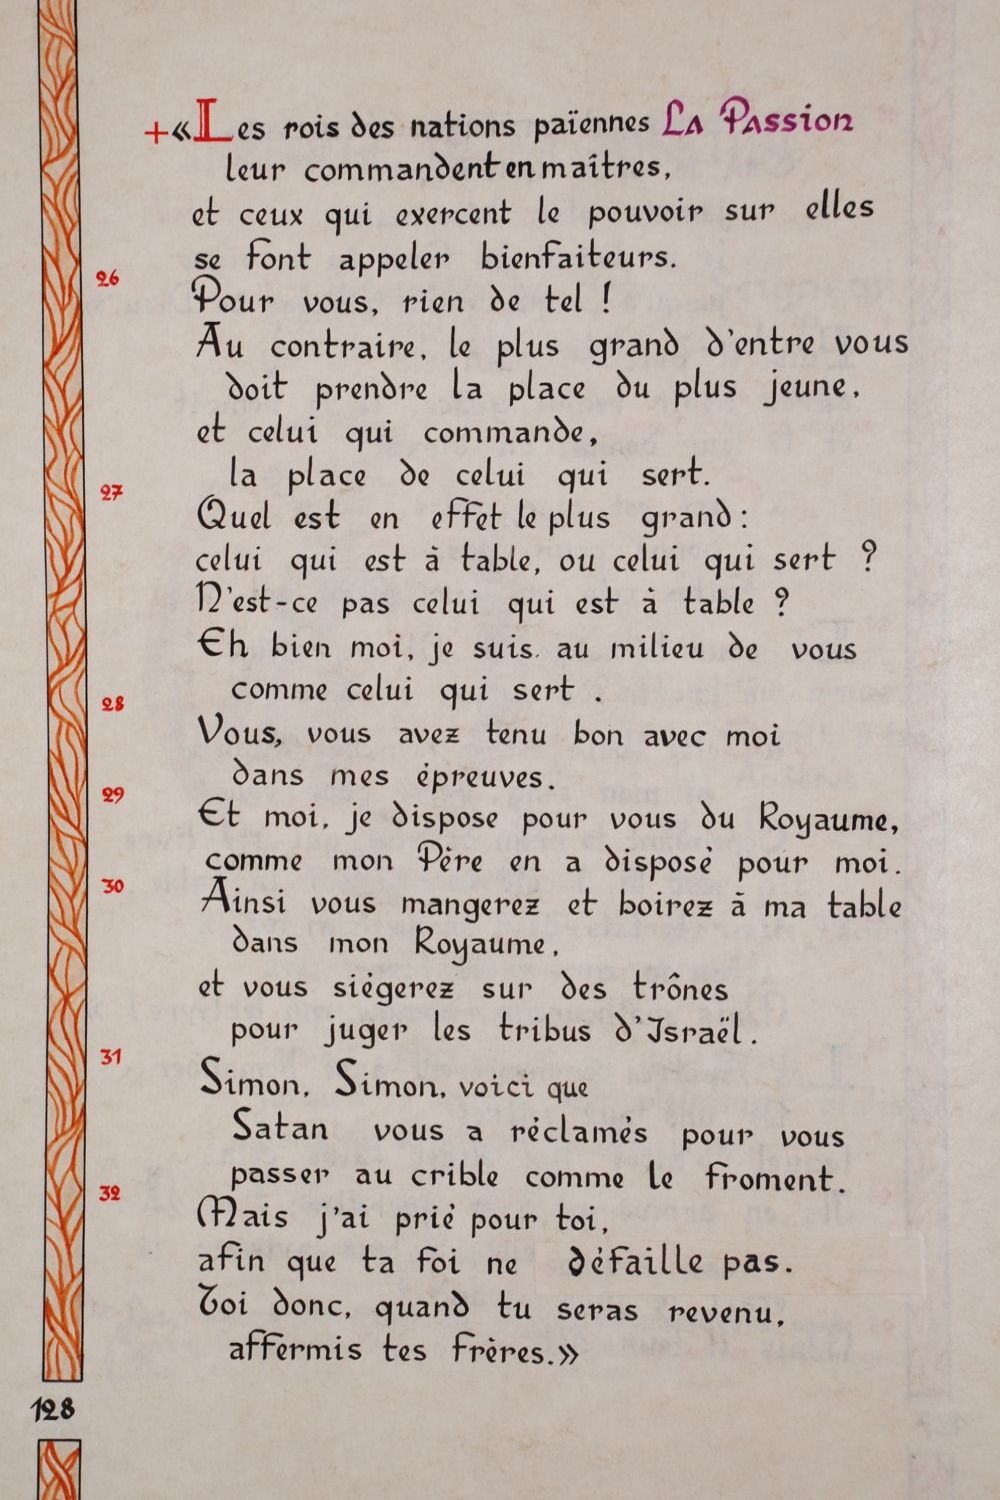 +«Les rois des nations païennes La Passion
leur commandent en maîtres,
et ceux qui exercent le pouvoir sur elles
se font appeler bienfaiteurs.
26
Pour vous, rien de tel !
Au contraire, le plus grand d'entre vous
doit prendre la place du plus jeune,
et celui qui commande,
la place de celui qui sert.
27
Quel est en effet le plus grand :
celui qui est à table, ou celui qui sert ?
N'est-ce pas celui qui est à table ?
Eh bien moi, je suis au milieu de vous
comme celui qui sert .
28
Vous, vous avez tenu bon avec moi
dans mes épreuves.
29
Et moi, je dispose pour vous du Royaume,
comme mon Père en a disposé pour moi.
30
Ainsi vous mangerez et boirez à ma table
dans mon Royaume,
et vous siégerez sur des trônes
pour juger les tribus d'Israël.
31
Simon, Simon, voici que
Satan vous a réclamés pour vous
passer au crible comme le froment.
32
Mais j'ai prié pour toi,
afin que ta foi ne défaille pas.
Toi donc, quand tu seras revenu,
affermis tes frères.»
128